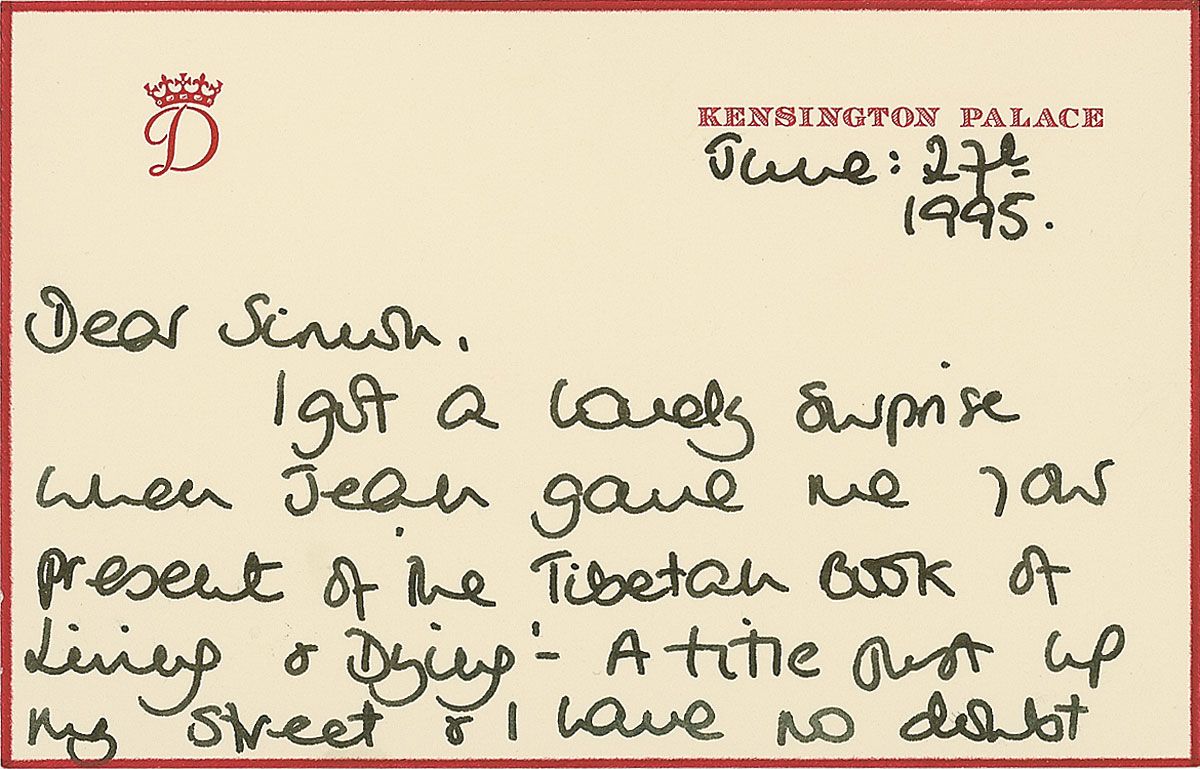 D
KENSINGTON PALACE
June: 27th
1995.
Dear Simon.
I got a lovely surprise
when Jean gave me your
present of 'The Tibetan Book of
Living & Dying' - A title just up
my street & I have no doubt